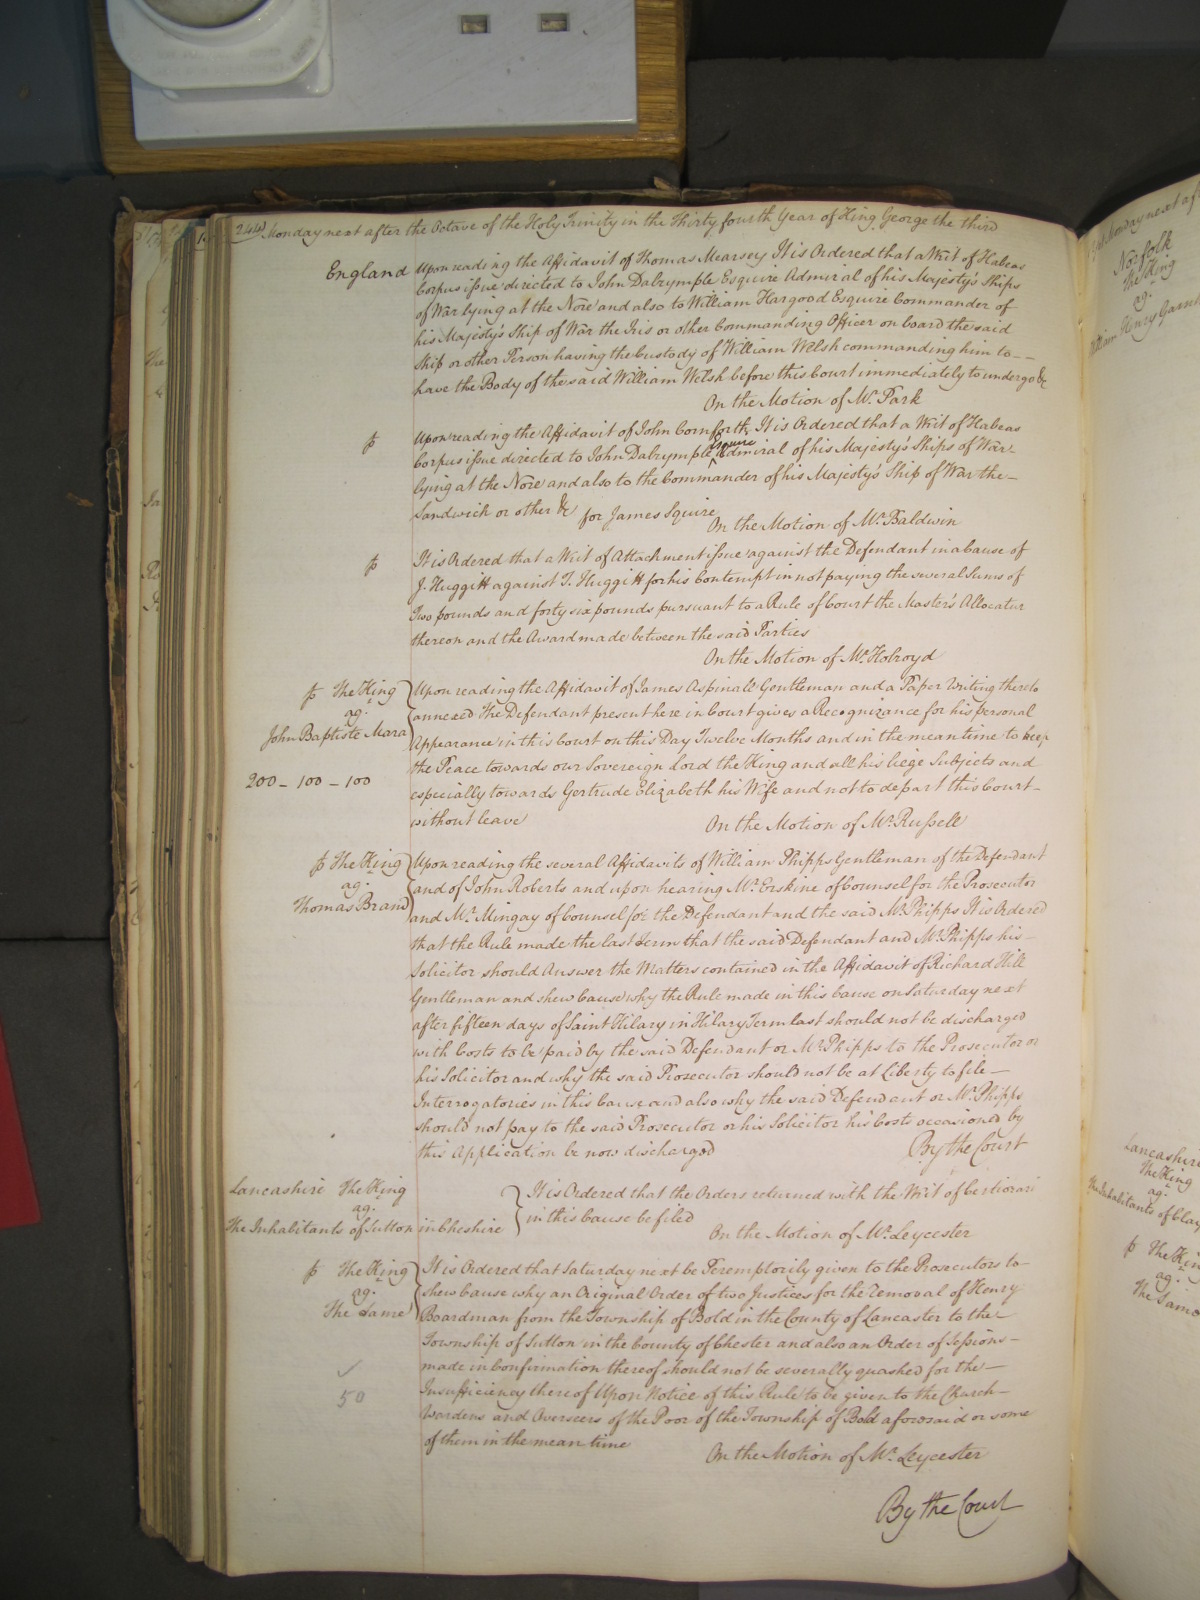 244 Monday next after the Octave of the Holy Trinity in the Thirty fourth Year of King George the third
England Upon reading the Affidavit of Thomas Mearsey It is Ordered that a Writ of Habeas
Corpus issue directed to John Dalrymple Esquire Admiral of his Majesty's Ships
of War lying at the Nore and also to William Hargood Esquire Commander of
his Majesty's Ship of War the Iris or other Commanding Officer on board the said
Ship or other Person having the Custody of William Welsh commanding him to
have the Body of the said William Welsh before this Court immediately to undergo &c
On the Motion of Mr. Park
Upon reading the Affidavit of John Cornforth It is Ordered that a Writ of Habeas
Corpus issue directed to John Dalrymple Esquire Admiral of his Majesty's Ships of War
lying at the Nore and also to the Commander of his Majesty's Ship of War the
Sandwich or other &c for James Squire
On the Motion of Mr. Baldwin
It is Ordered that a Writ of Attachment issue against the Defendant in a Cause of
J. Huggitt against T. Huggitt for his Contempt in not paying the several Sums of
Two pounds and forty six pounds pursuant to a Rule of Court the Master's Allocatur
thereon and the Award made between the said Parties
On the Motion of Mr. Holroyd
The King
ag.
John Baptiste Mara
200 - 100 - 100
Upon reading the Affidavit of James Aspinall Gentleman and a Paper Writing thereto
annexed The Defendant present here in Court gives a Recognizance for his personal
Appearance in this Court on this Day Twelve Months and in the mean time to keep
the Peace towards our Sovereign Lord the King and all his liege Subjects and
especially towards Gertrude Elizabeth his Wife and not to depart this Court
without leave
On the Motion of Mr. Russell
The King
ag.
Thomas Brand
Upon reading the several Affidavits of William Phipps Gentleman of the Defendant
and of John Roberts and upon hearing Mr. Erskine of Counsel for the Prosecutor
and Mr. Mingay of Counsel for the Defendant and the said Mr. Phipps It is Ordered
that the Rule made the last Term that the said Defendant and Mr. Phipps his
Solicitor should Answer the Matters contained in the Affidavit of Richard Hill
Gentleman and shew Cause why the Rule made in this Cause on Saturday next
after fifteen days of Saint Hilary in Hilary Term last should not be discharged
with Costs to be paid by the said Defendant or Mr. Phipps to the Prosecutor or
his Solicitor and why the said Prosecutor should not be at Liberty to file
Interrogatories in this Cause and also why the said Defendant or Mr. Phipps
should not pay to the said Prosecutor or his Solicitor his Costs occasioned by
this Application be now discharged
By the Court
Lancashire The King
ag.
The Inhabitants of Sutton in Cheshire
It is Ordered that the Orders returned with the Writ of Certiorari
in this Cause be filed
On the Motion of Mr. Leycester
The King
ag.
The Same
50
It is Ordered that Saturday next be Peremptorily given to the Prosecutors to
shew Cause why an Original Order of two Justices for the Removal of Henry
Boardman from the Township of Bold in the County of Lancaster to the
Township of Sutton in the County of Chester and also an Order of Sessions
made in Confirmation thereof should not be severally quashed for the
Insufficiency thereof Upon Notice of this Rule to be given to the Church
Wardens and Overseers of the Poor of the Township of Bold aforesaid or some
of them in the mean time
On the Motion of Mr. Leycester
By the Court
Monday next
Norfolk
The King
ag.
William Henry
Lancashire
The King
ag.
The Inhabitants of
The King
ag.
The Same